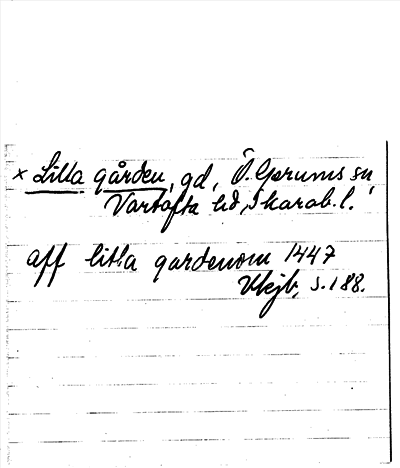 × Lilla gården, gd, Ö. Gerums sn,
Vartofta hd, Skarab. l.
aff litla gardenom 1447
Vkjb, s. 188.